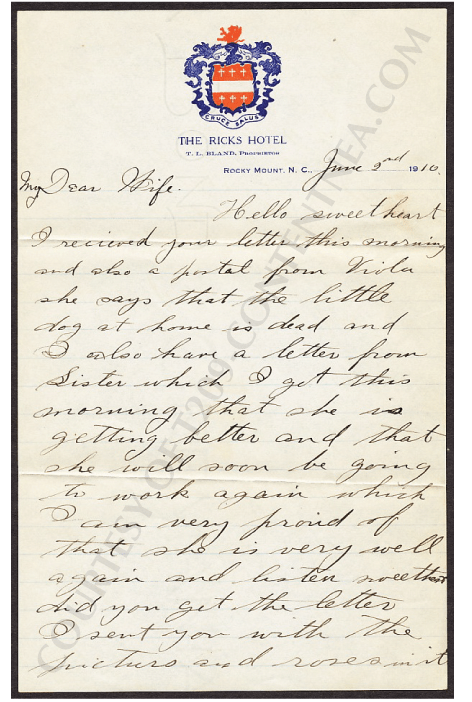 CRUCE SALUS
THE RICKS HOTEL
T. L. BLAND, PROPRIETOR
ROCKY MOUNT, N. C., June 2nd 1910.
My Dear Wife.
Hello sweetheart
I recieved your letter this morning
and also a postal from Viola
she says that the little
dog at home is dead and
I also have a letter from
Sister which I got this
morning that she is
getting better and that
she will soon be going
to work again which
I am very proud of
that she is very well
again and listen sweetheart
did you get the letter
I sent you with the
picture and roses in it
COURTESY OF T209-CONTENTNEA.COM